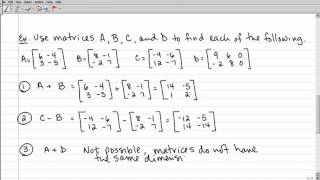 Ex. Use matrices A, B, C, and D to find each of the following.
A = [6 -4; 3 -5] B = [8 -1; -2 7] C = [-4 -6; 12 -7] D = [9 6 0; -2 8 0]
① A + B = [6 -4; 3 -5] + [8 -1; -2 7] = [14 -5; 1 2]
② C - B = [-4 -6; 12 -7] - [8 -1; -2 7] = [-12 -5; 14 -14]
③ A + D Not possible, matrices do not have
the same dimensi